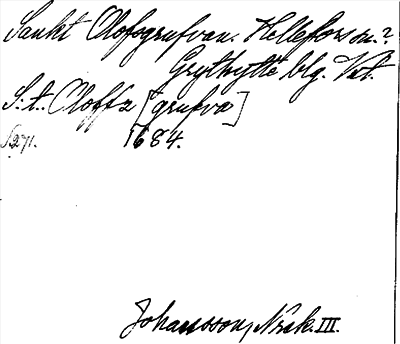 Sankt Olofsgrufvan. Hellefors sn.?
Grythytte blg. Vstm.
S:t. Oloffz [grufva]
S. 271. 1684.
Johansson, Norak. III.